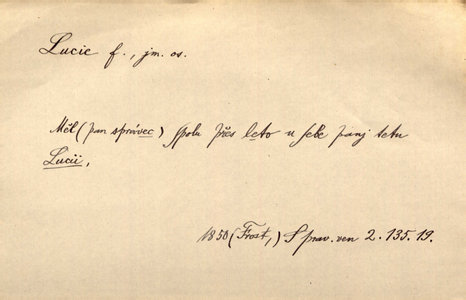 Lucie f., jm. os.
Měl (pan správec) spolu přes leto u sebe panj tetu
Lucii,
1850 (Frost,) Sprav. ven 2. 135. 19.